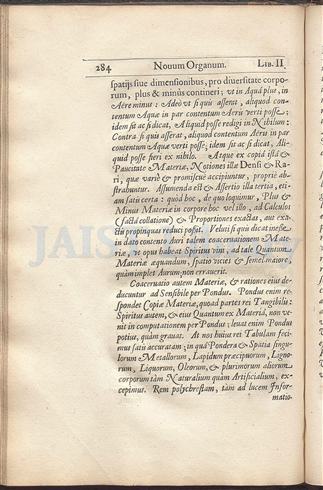 284 Nouum Organum. LIB. II
spatijs siue dimensionibus, pro diuersitate corpo-
rum, plus & minùs contineri; vt in Aquâ plus, in
Aëre minus: Adeò vt si quis asserat, aliquod con-
tentum Aquæ in par contentum Aëris verti posse;
idem sit ac si dicat, Aliquid posse redigi in Nihilum:
Contrà si quis asserat, aliquod contentum Aëris in par
contentum Aquæ verti posse; idem sit ac si dicat, Ali-
quid posse fieri ex nihilo. Atque ex copiâ istâ &
Paucitate Materiæ, Notiones illæ Densi & Ra-
ri, quæ variè & promiscuè accipiuntur, propriè ab-
strahuntur. Assumenda est & Assertio illa tertia, eti-
am satis certa: quòd hoc, de quo loquimur, Plus &
Minus Materiæ in corpore hoc vel illo, ad Calculos
(factâ collatione) & Proportiones exactas, aut exa-
ctis propinquas reduci possit. Veluti si quis dicat inesse
in dato contento Auri talem coaceruationem Mate-
riæ, vt opus habeat Spiritus vini, ad tale Quantum
Materiæ æquandum, spatio vicies & semel maiore,
quàm implet Aurum, non errauerit.
Coaceruatio autem Materiæ, & rationes eius de-
ducuntur ad Sensibile per Pondus. Pondus enim re-
spondet Copiæ Materiæ, quoad partes rei Tangibilis:
Spiritus autem, & eius Quantum ex Materiâ, non ve-
nit in computationem per Pondus; leuat enim Pondus
potiùs, quàm grauat. At nos huius rei Tabulam feci-
mus satis accuratam; in quâ Pondera & Spatia singu-
lorum Metallorum, Lapidum præcipuorum, Ligno-
rum, Liquorum, Oleorum, & plurimorum aliorum
corporum tàm Naturalium quàm Artificialium, ex-
cepimus. Rem polychrestam, tàm ad lucem Infor-
matio-